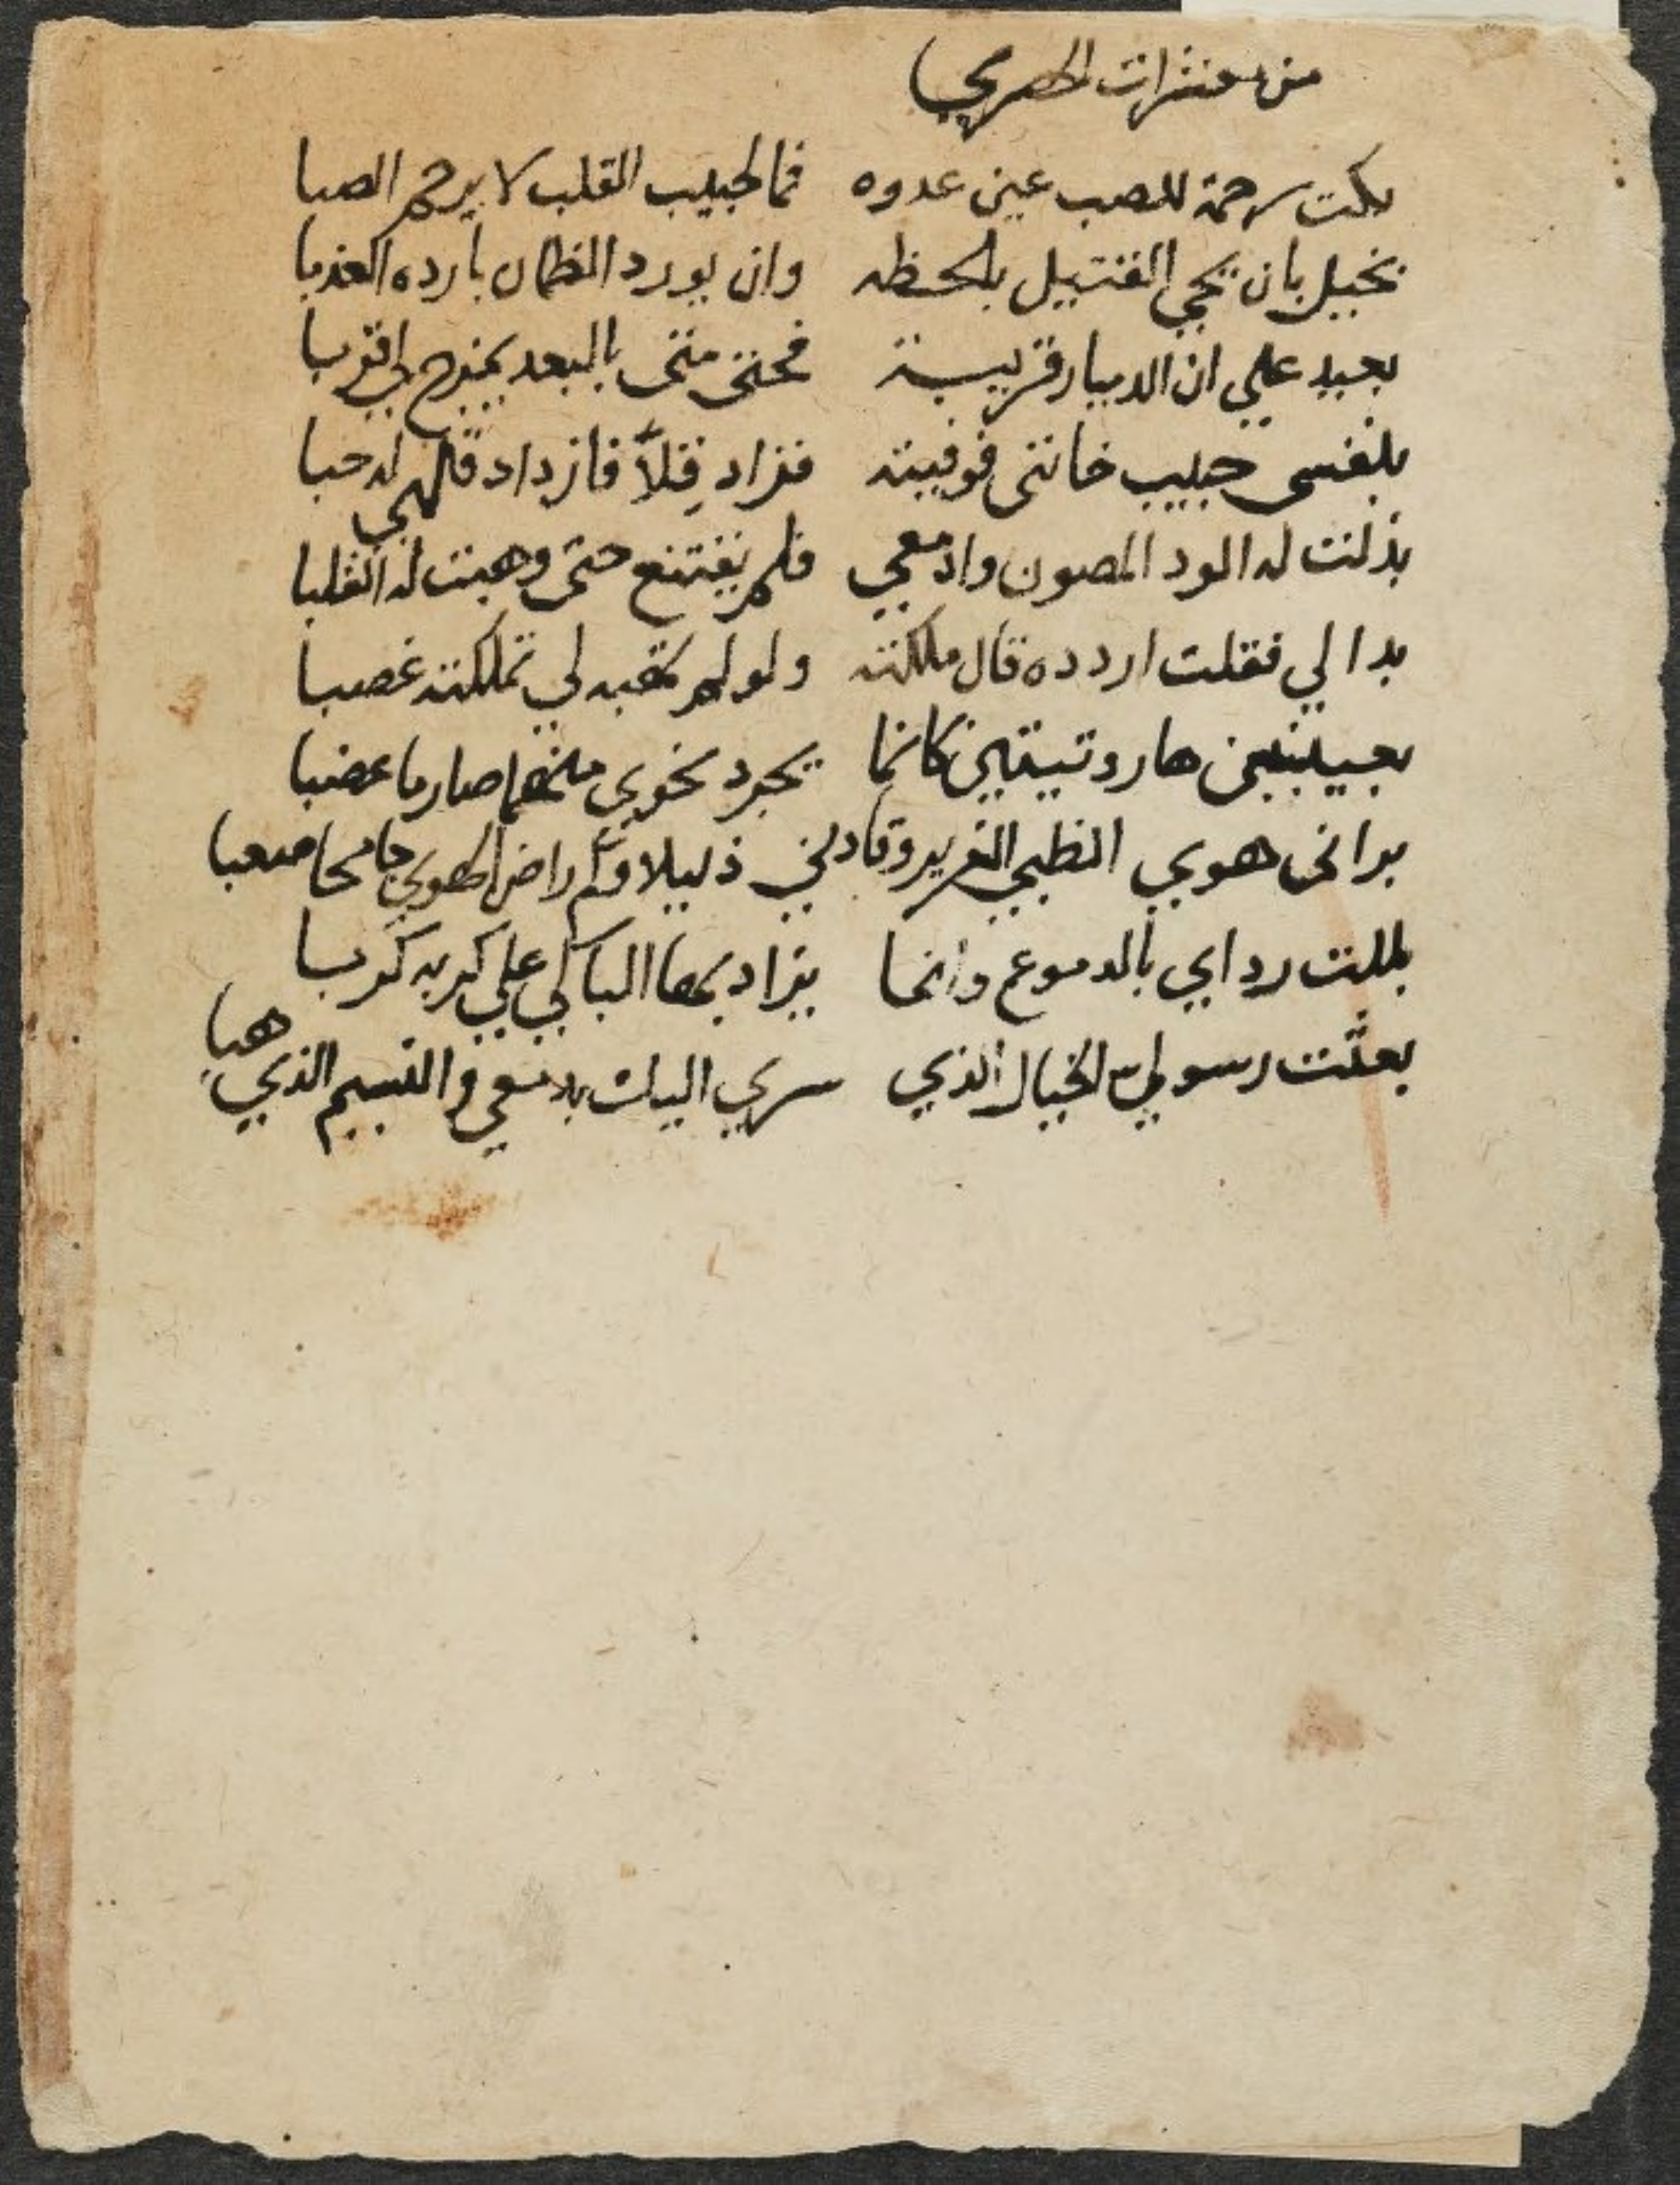 من معشرات الحصري
بكت رحمة للصب عين عدوه فما لحبيب القلب لا يرحم الصبا
بخيل بان يحيي القتيل بلحظه وان يورد الظمان بارده العذبا
بعيد علي ان الديار قريبة فحتى متى بالبعد يمزج لي القربا
بنفسي حبيب خانني فوفيته فزاد قِلاً فازداد قلبي له حبا
بذلت له الود المصون وادمعي فلم يقتنع حتى وهبت له القلبا
بدا لي فقلت اردده قال ملكته ولو لم تهبه لي تملكته غصبا
بعينين هاروتيتين كانما يجرد نحوي منهما صارما عضبا
براني هوي الظبي الغرير وقادني ذليلا وكم راض الهوي جامحا صعبا
بللت رداي بالدموع وانما يزاد بها الباكي علي كربه كربا
بعثت رسولي الخيال الذي سري اليك بدمعي والنسيم الذي هبا